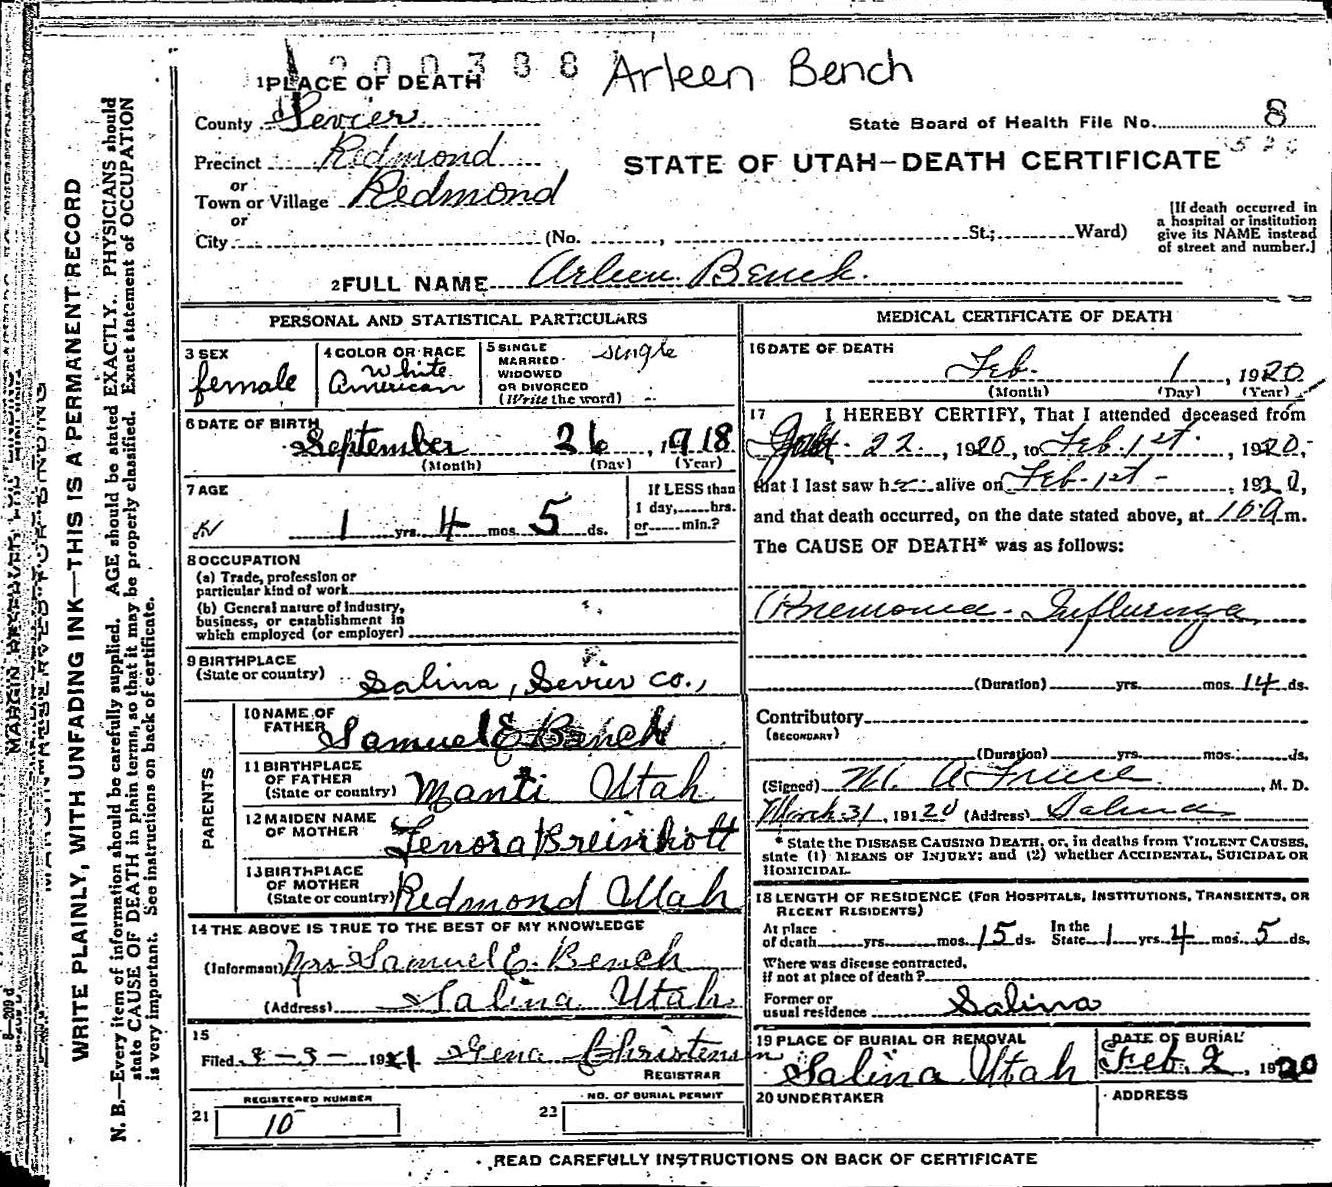 200388 Arleen Bench
1 PLACE OF DEATH
County Sevier
State Board of Health File No. 8
Precinct Redmond
STATE OF UTAH—DEATH CERTIFICATE
or
Town or Village Redmond
or
City (No. , St.; Ward)
[If death occurred in
a hospital or institution
give its NAME instead
of street and number.]
2 FULL NAME Arleen Bench
PERSONAL AND STATISTICAL PARTICULARS
3 SEX
female
4 COLOR OR RACE
White
American
5 SINGLE
MARRIED
WIDOWED
OR DIVORCED
(Write the word)
single
6 DATE OF BIRTH
September 26, 1918
(Month) (Day) (Year)
7 AGE
1 yrs. 4 mos. 5 ds.
If LESS than
1 day, hrs.
or min.?
8 OCCUPATION
(a) Trade, profession or
particular kind of work
(b) General nature of industry,
business, or establishment in
which employed (or employer)
9 BIRTHPLACE
(State or country) Salina, Sevier co.,
PARENTS
10 NAME OF
FATHER Samuel E Bench
11 BIRTHPLACE
OF FATHER
(State or country) Manti Utah
12 MAIDEN NAME
OF MOTHER Lenora Breinholt
13 BIRTHPLACE
OF MOTHER
(State or country) Redmond Utah
14 THE ABOVE IS TRUE TO THE BEST OF MY KNOWLEDGE
(Informant) Mrs Samuel E. Bench
(Address) Salina Utah
15
Filed 8-3- 1921 Gena Christensen
REGISTRAR
REGISTERED NUMBER
21 10
NO. OF BURIAL PERMIT
22
MEDICAL CERTIFICATE OF DEATH
16 DATE OF DEATH
Feb. 1, 1920
(Month) (Day) (Year)
17 I HEREBY CERTIFY, That I attended deceased from
22, 1920, to Feb. 1st, 1920,
that I last saw h alive on Feb. 1st, 1920,
and that death occurred, on the date stated above, at 10 a m.
The CAUSE OF DEATH* was as follows:
Pnemonia - Influenza
(Duration) yrs. mos. 14 ds.
Contributory
(SECONDARY)
(Duration) yrs. mos. ds.
(Signed) M. D.
March 31, 1920 (Address) Salina
* State the DISEASE CAUSING DEATH, or, in deaths from VIOLENT CAUSES,
state (1) MEANS OF INJURY; and (2) whether ACCIDENTAL, SUICIDAL OR
HOMICIDAL.
18 LENGTH OF RESIDENCE (FOR HOSPITALS, INSTITUTIONS, TRANSIENTS, OR
RECENT RESIDENTS)
At place
of death yrs. mos. 15 ds. In the
State 1 yrs. 4 mos. 5 ds.
Where was disease contracted,
if not at place of death?
Former or
usual residence Salina
19 PLACE OF BURIAL OR REMOVAL
Salina Utah
DATE OF BURIAL
Feb. 2, 1920
20 UNDERTAKER
ADDRESS
READ CAREFULLY INSTRUCTIONS ON BACK OF CERTIFICATE
WRITE PLAINLY, WITH UNFADING INK—THIS IS A PERMANENT RECORD
N. B.—Every item of information should be carefully supplied. AGE should be stated EXACTLY. PHYSICIANS should
state CAUSE OF DEATH in plain terms, so that it may be properly classified. Exact statement of OCCUPATION
is very important. See instructions on back of certificate.